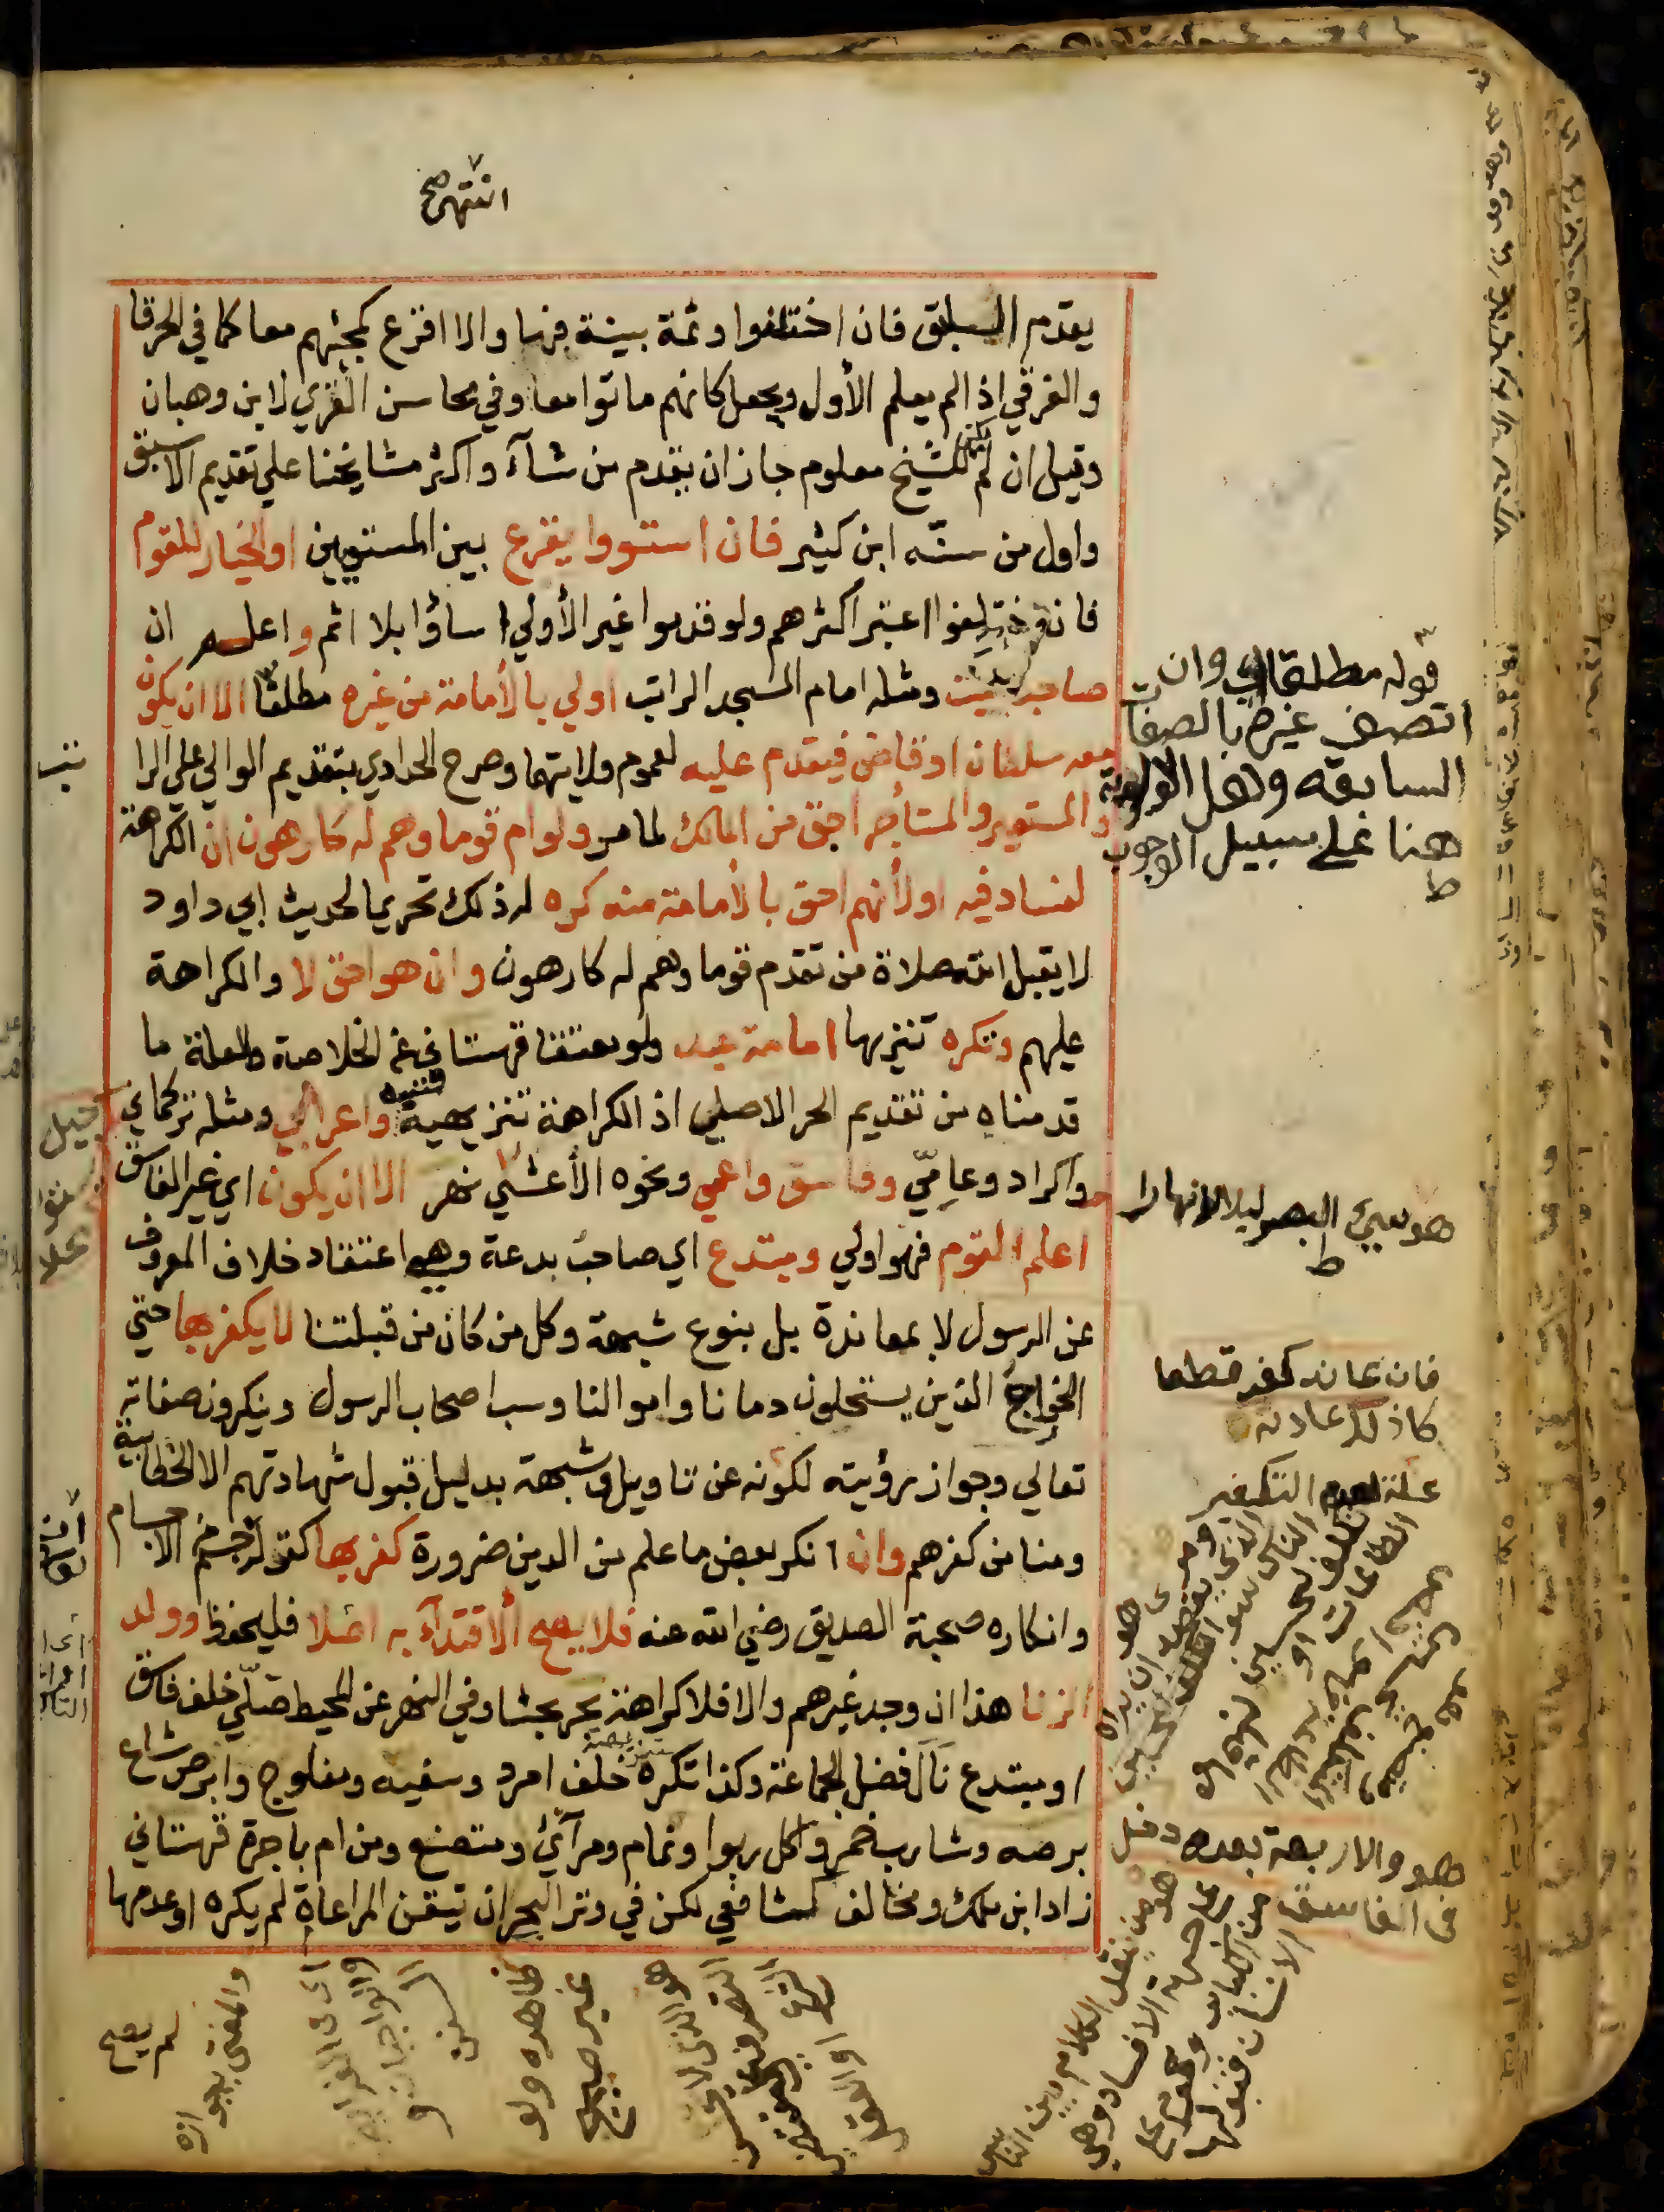 انتهى صح
يقدم السابق فان اختلفوا وثمة بينة فبها والا اقرع كمجيئهم معا كما في الحرقا
والغرقي اذا لم يعلم الأول ويجعل كانهم ماتوا معا وفي محاسن القري لابن وهبان
وقيل ان لم يكن للشيخ معلوم جاز ان يقدم من شآء واكثر مشايخنا علي تقديم الاسبق
واول من سنّه ابن كثير فان استووا يقرع بين المستويين او الخيار للقوم
فان اختلفوا اعتبر اكثرهم ولو قدموا غير الأولي اساؤا بلا اثم واعلم ان
صاحب البيت ومثله امام المسجد الراتب اولي بالأمامة من غيره مطلقا الا ان يكون
معه سلطان او قاضي فيقدم عليه لعموم ولايتهما وصرح الحدادي بتقديم الوالي علي الرا
تب
والمستعير والمستأجر احق من المالك لما مر ولو ام قوما وهم له كارهون ان الكراهة
لفساد فيه او لأنهم احق بالأمامة منه كره له ذلك تحريما لحديث ابي داود
لا يقبل الله صلاة من تقدم قوما وهم له كارهون وان هو احق لا والكراهة
عليهم وتكره تنزيها امامة عبد ولو معتقا قهستاني عن الخلاصة ولعله ما
قدمناه من تقديم الحر الاصلي اذ الكراهة تنزيهية فتنبه واعرابي ومثله تركماني
واكراد وعامّي وفاسق واعمي ونحوه الأعشي نهر الا ان يكون اي غير الفاسق
اعلم القوم فهو اولي ومبتدع اي صاحب بدعة وهي اعتقاد خلاف المعروف
عن الرسول لا بمعاندة بل بنوع شبهة وكل من كان من قبلتنا لا يكفر بها حتي
الخوارج الذين يستحلون دمانا واموالنا وسب اصحاب الرسول وينكرون صفاته
تعالي وجواز رؤيته لكونه عن تاويل وشبهة بدليل قبول شهادتهم الا الخطابية
ومنا من كفرهم وان انكر بعض ما علم من الدين ضرورة كفر بها كقوله جسم كالاجسام
وانكاره صحبة الصديق رضي الله عنه فلا يصح الاقتدآء به اصلا فليحفظ وولد
الزنا هذا ان وجد غيرهم والا فلا كراهة بحر بحثا وفي النهر عن المحيط صلّي خلف فاسق
او مبتدع نال فضل الجماعة وكذا تكره خلف امرد وسفيه ومفلوج وابرص شاع
برصه وشارب خمر واكل ربوا ونمام ومرآئي ومتصنع ومن ام باجرة قهستاني
زاد ابن ملك ومخالف كشافعي لكن في وتر البحر ان تيقن المراعاة لم يكره او عدمها
قوله مطلقا اي وان
اتصف غيره بالصفات
السابقه وهل الاولوية
هنا علي سبيل الوجوب
ط
هو سيئ البصر ليلا لا نهارا
ط
فان عاند كفر قطعا
علة لعدم التكفير
هو والاربعة بعده دخل
في الفاسق
هو من ينقل الكلام بين الناس
علي جهة الافساد وهي
من الكبائر
ظاهره ولو
غير صبيح
هو الذي لا يحسن
التصرف علي مقتضي
الشرع او العقل
لم يصح